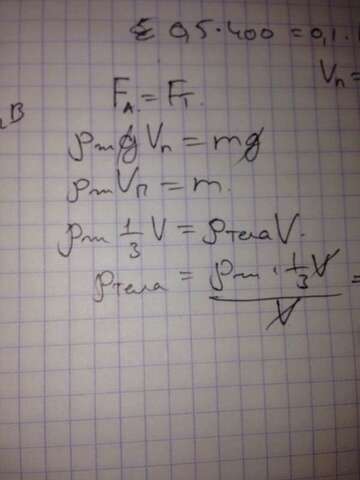 0,5·400 = 0,1·
Vп =
В
FA = FT.
ρж g Vп = mg
ρж Vп = m.
ρж 1/3 V = ρтела V.
ρтела = ρж · 1/3 V / V =